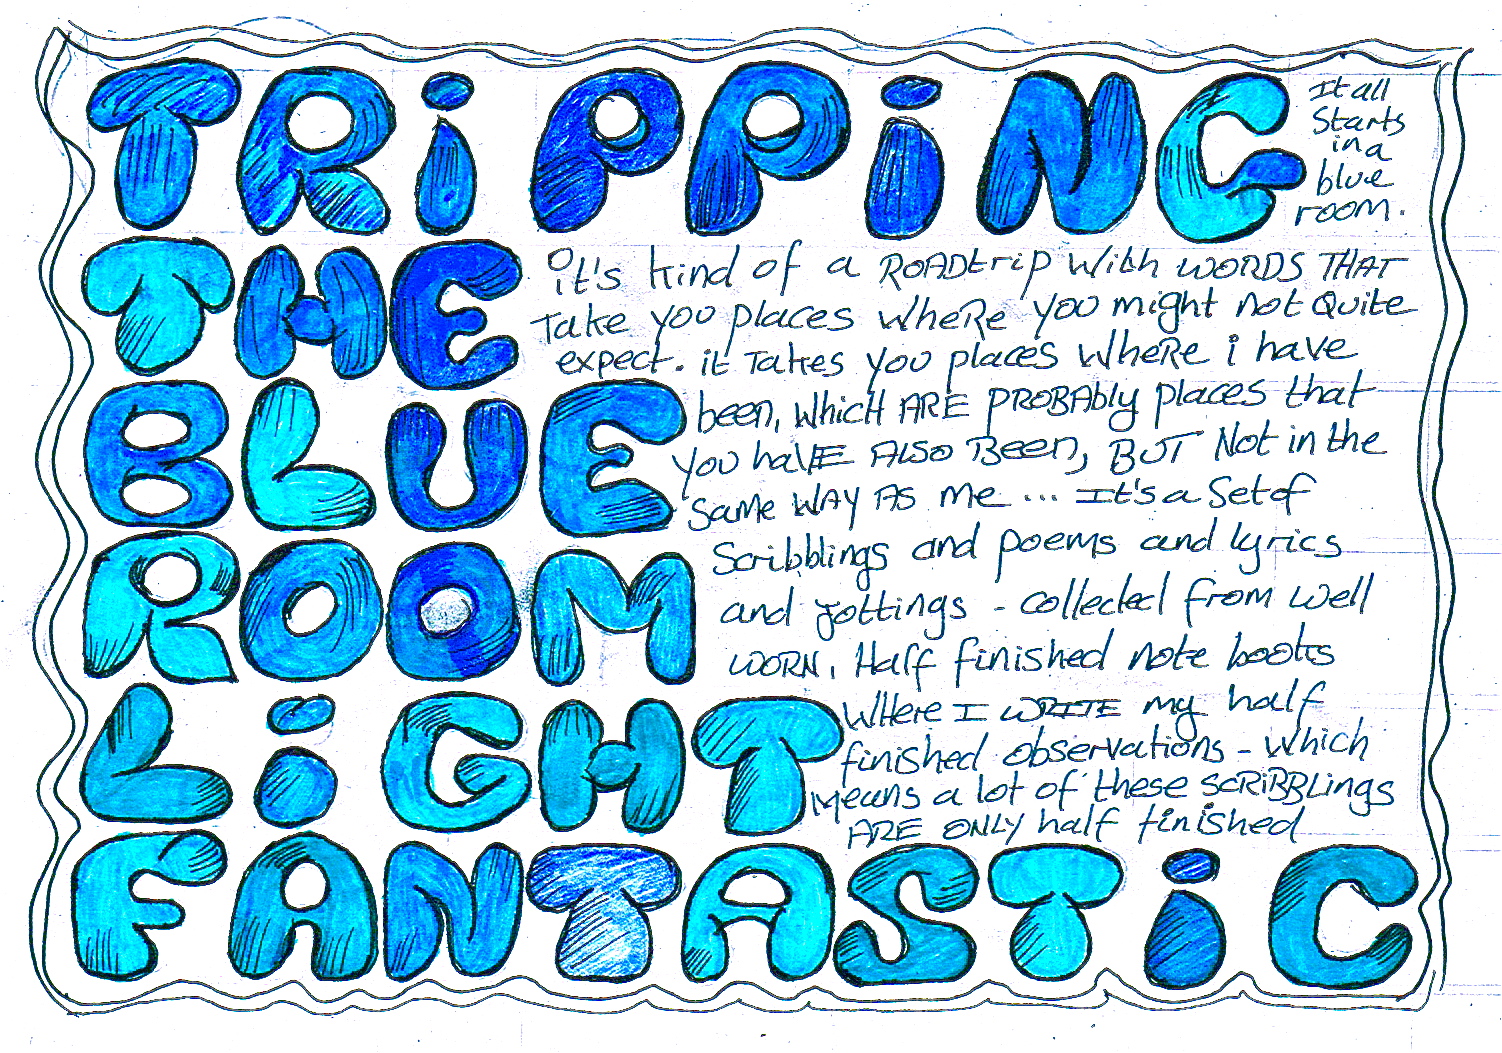 TRiPPiNG
It all
Starts
in a
blue
room.
THE
it's kind of a ROADtrip With WORDS THAT
Take you places wheRe you might not Quite
expect. it Takes you places WheRe i have
BLUE
been, which ARE PROBAbly places that
you haVE ALSO Been, BUT Not in the
Same WAY AS me ... It's a Set of
ROOM
Scribblings and poems and lyrics
and jottings - collected from well
WORN, Half finished note books
LiGHT
WHere I WRITE my half
finished observations - which
Means a lot of these SCRiBBLings
ARE ONLY half finished
FANTASTiC